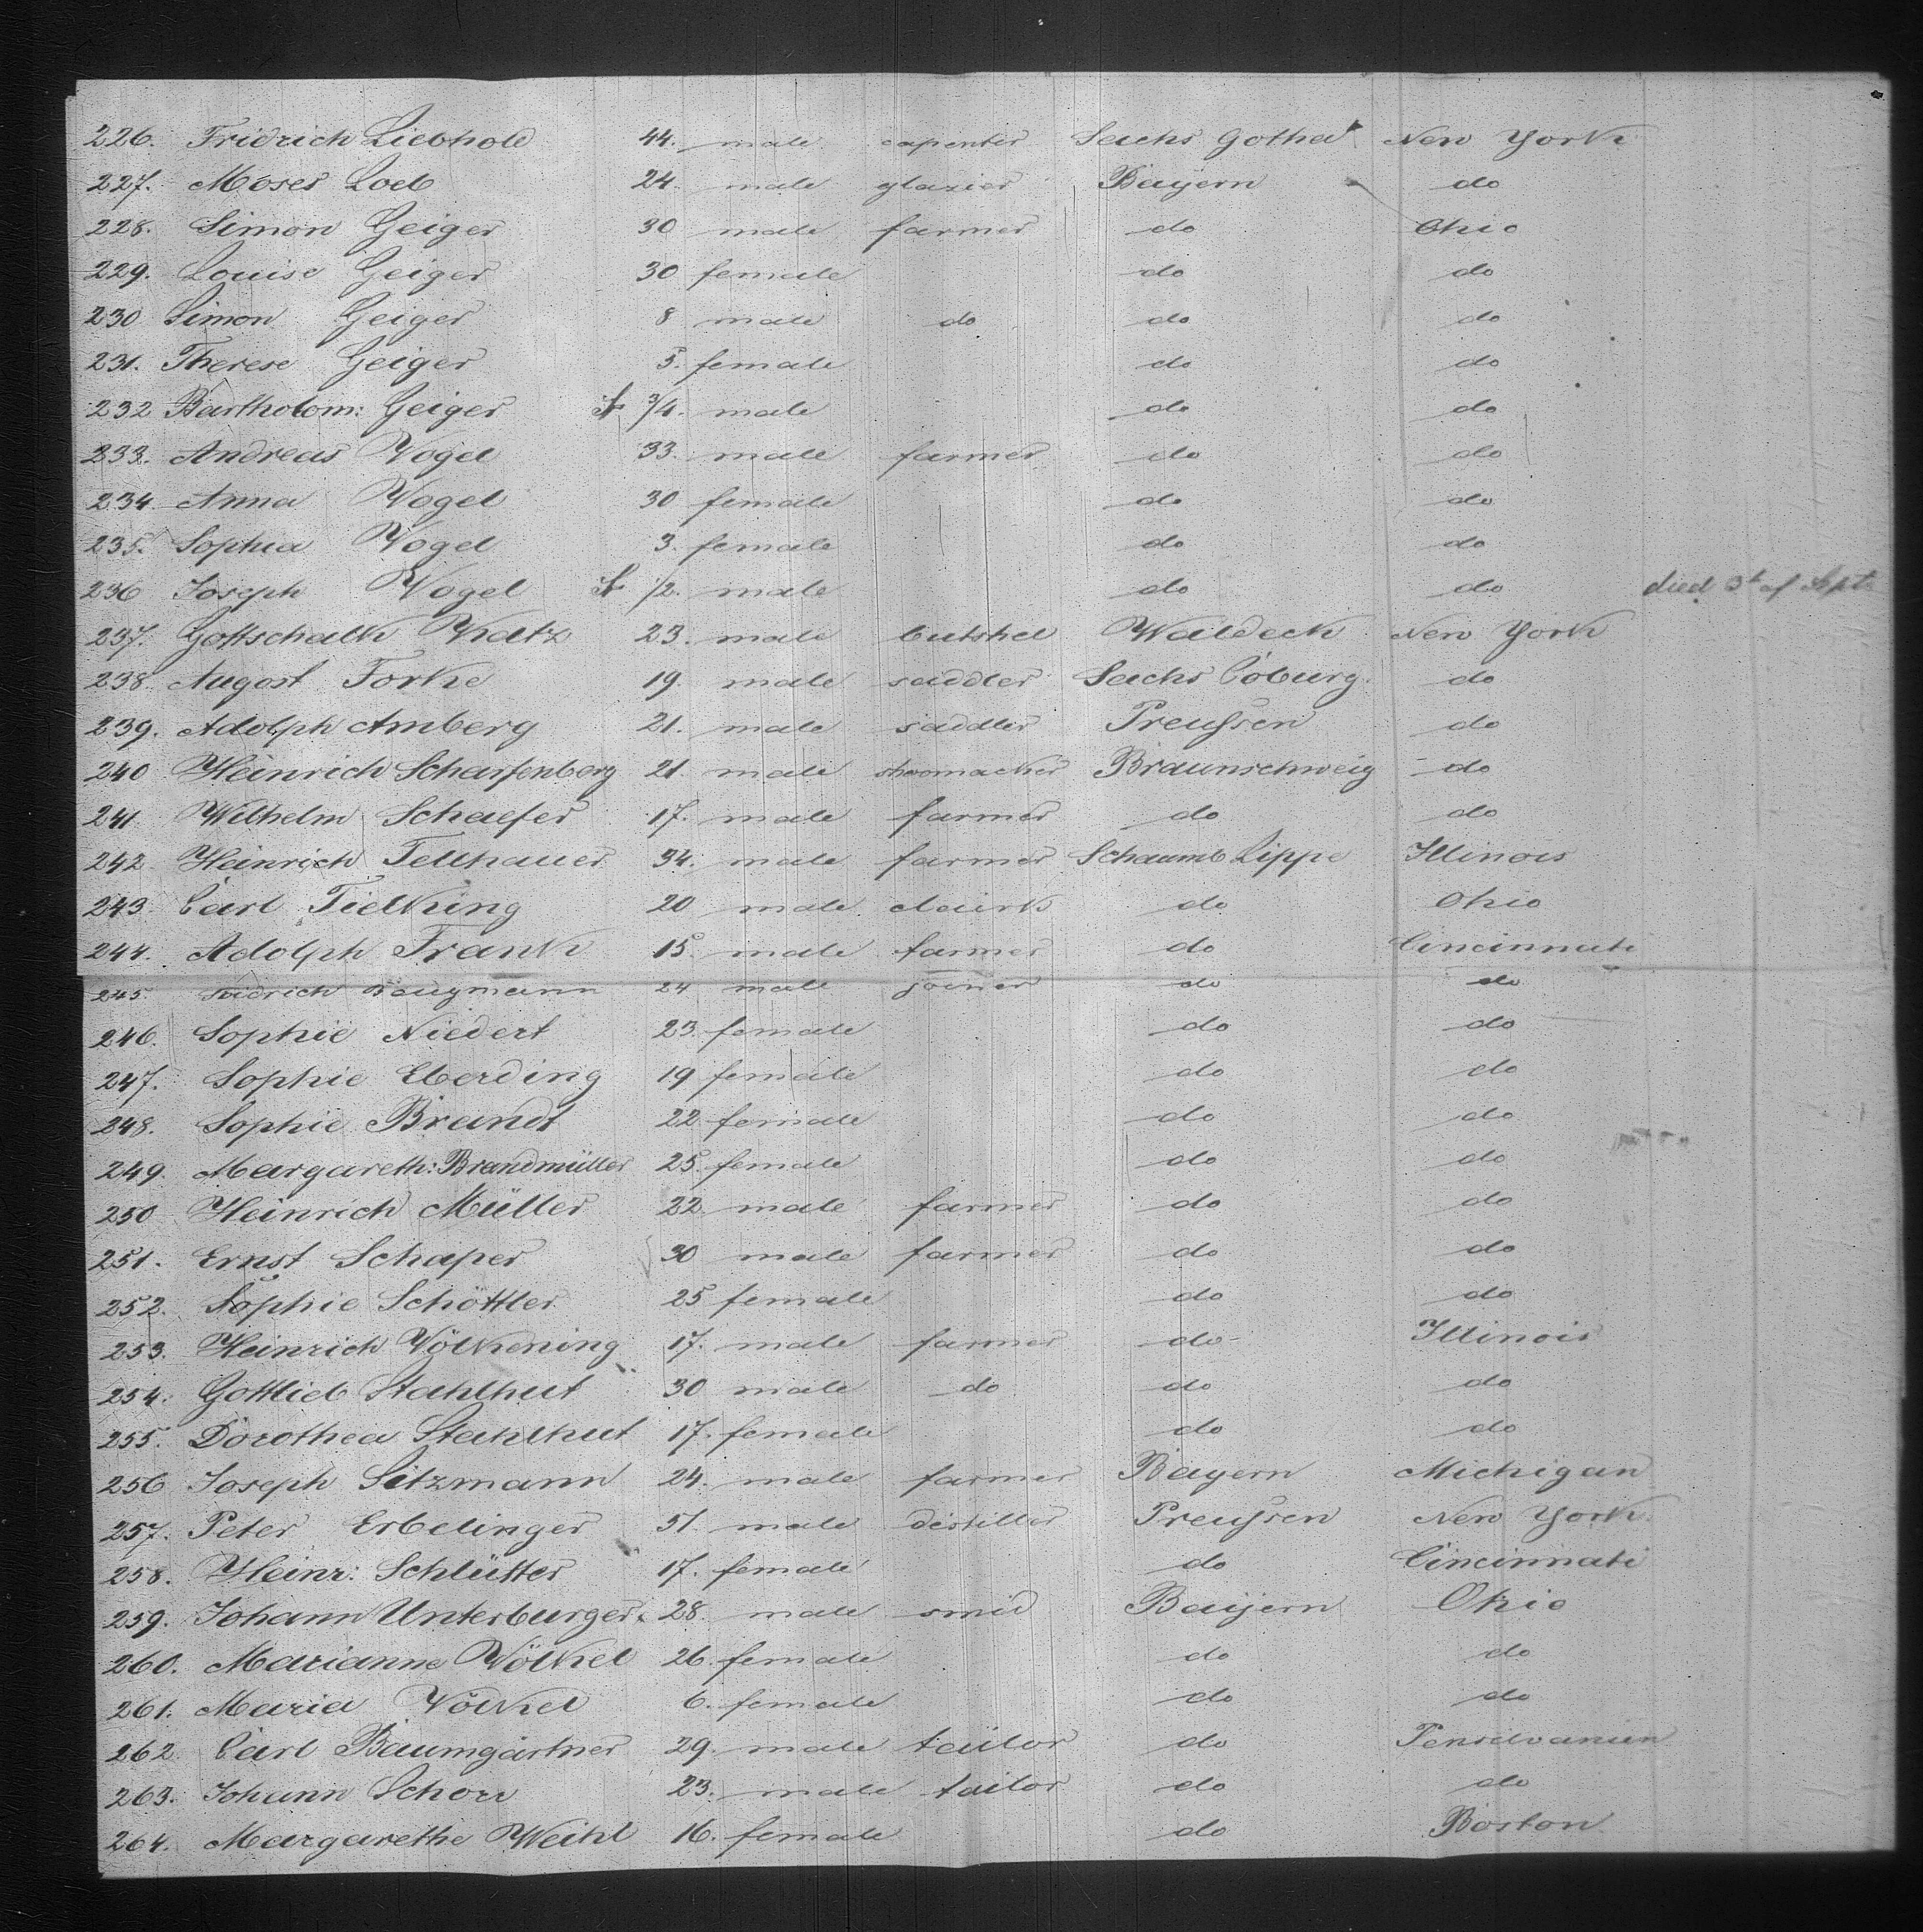 226. Fridrich Liebhold 44. male capenter Sachs Gotha New York
227. Moses Loeb 24. male glazier Bayern do
228. Simon Geiger 30 male farmer do Ohio
229. Louise Geiger 30 female do do
230 Simon Geiger 8 male do do do
231. Therese Geiger 5. female do do
232 Bartholom: Geiger 3/4. male do do
233. Andreas Vogel 33. male farmer do do
234. Anna Vogel 30 female do do
235. Sophia Vogel 3. female do do
236 Joseph Vogel 1/2. male do do died 3t of Sept.
237. Gottschalk Katz 23. male butshel Waldeck New York
238. August Forke 19. male saddler Sachs Coburg. do
239. Adolph Amberg 21. male saddler Preußen do
240 Heinrich Scharfenberg 21. male shoomacker Braunschweig do
241 Wilhelm Schaefer 17. male farmer do do
242. Heinrich Tellhauer 34. male farmer Schaumb Lippe Illinois
243. Carl Tielking 20 male do Ohio
244. Adolph Frank 15. male farmer do Cincinnati
245. Fridrich 24 male joiner do do
246. Sophie Niedert 23. female do do
247. Sophie Eberding 19 female do do
248. Sophie Brandt 22 female do do
249. Margareth: Brandmüller 25. female do do
250 Heinrich Müller 22. male farmer do do
251. Ernst Schaper 30 male farmer do do
252. Sophie Schöttler 25 female do do
253. Heinrich Völkening 17. male farmer do Illinois
254. Gottlieb Stahlhut 30 male do do do
255. Dorothea Stahlhut 17. female do do
256 Joseph Sitzmann 24. male farmer Bayern Michigan
257. Peter Erbelinger 51. male distiller Preußen New York
258. Heinr: Schlütter 17. female do Cincinnati
259. Johann Unterburger 28. male smid Bayern Ohio
260. Marianne Völkel 26. female do do
261. Maria Völkel 6. female do do
262. Carl Baumgärtner 29. male tailor do Pensilvanien
263. Johann Schorr 23. male tailor do do
264. Margarethe Weihl 16. female do Boston